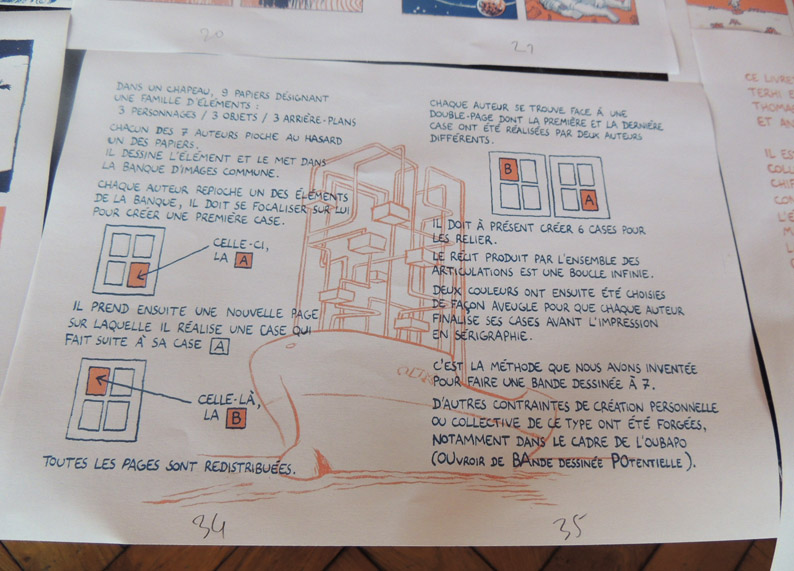 20
21
DANS UN CHAPEAU, 9 PAPIERS DÉSIGNANT
UNE FAMILLE D'ÉLÉMENTS :
3 PERSONNAGES / 3 OBJETS / 3 ARRIÈRE-PLANS
CHACUN DES 7 AUTEURS PIOCHE AU HASARD
UN DES PAPIERS.
IL DESSINE L'ÉLÉMENT ET LE MET DANS
LA BANQUE D'IMAGES COMMUNE.
CHAQUE AUTEUR REPIOCHE UN DES ÉLÉMENTS
DE LA BANQUE, IL DOIT SE FOCALISER SUR LUI
POUR CRÉER UNE PREMIÈRE CASE.
CELLE-CI,
LA A
IL PREND ENSUITE UNE NOUVELLE PAGE
SUR LAQUELLE IL RÉALISE UNE CASE QUI
FAIT SUITE À SA CASE A
CELLE-LÀ,
LA B
TOUTES LES PAGES SONT REDISTRIBUÉES.
34
CHAQUE AUTEUR SE TROUVE FACE À UNE
DOUBLE-PAGE DONT LA PREMIÈRE ET LA DERNIÈRE
CASE ONT ÉTÉ RÉALISÉES PAR DEUX AUTEURS
DIFFÉRENTS.
B
A
IL DOIT À PRÉSENT CRÉER 6 CASES POUR
LES RELIER.
LE RÉCIT PRODUIT PAR L'ENSEMBLE DES
ARTICULATIONS EST UNE BOUCLE INFINIE.
DEUX COULEURS ONT ENSUITE ÉTÉ CHOISIES
DE FAÇON AVEUGLE POUR QUE CHAQUE AUTEUR
FINALISE SES CASES AVANT L'IMPRESSION
EN SÉRIGRAPHIE.
C'EST LA MÉTHODE QUE NOUS AVONS INVENTÉE
POUR FAIRE UNE BANDE DESSINÉE À 7.
D'AUTRES CONTRAINTES DE CRÉATION PERSONNELLE
OU COLLECTIVE DE CE TYPE ONT ÉTÉ FORGÉES,
NOTAMMENT DANS LE CADRE DE L'OUBAPO
(OUVROIR DE BANDE DESSINÉE POTENTIELLE).
35
CE LIVRE
TERHI E
THOMA
ET AN
IL ES
COLL
CHIF
CON
L'É
M